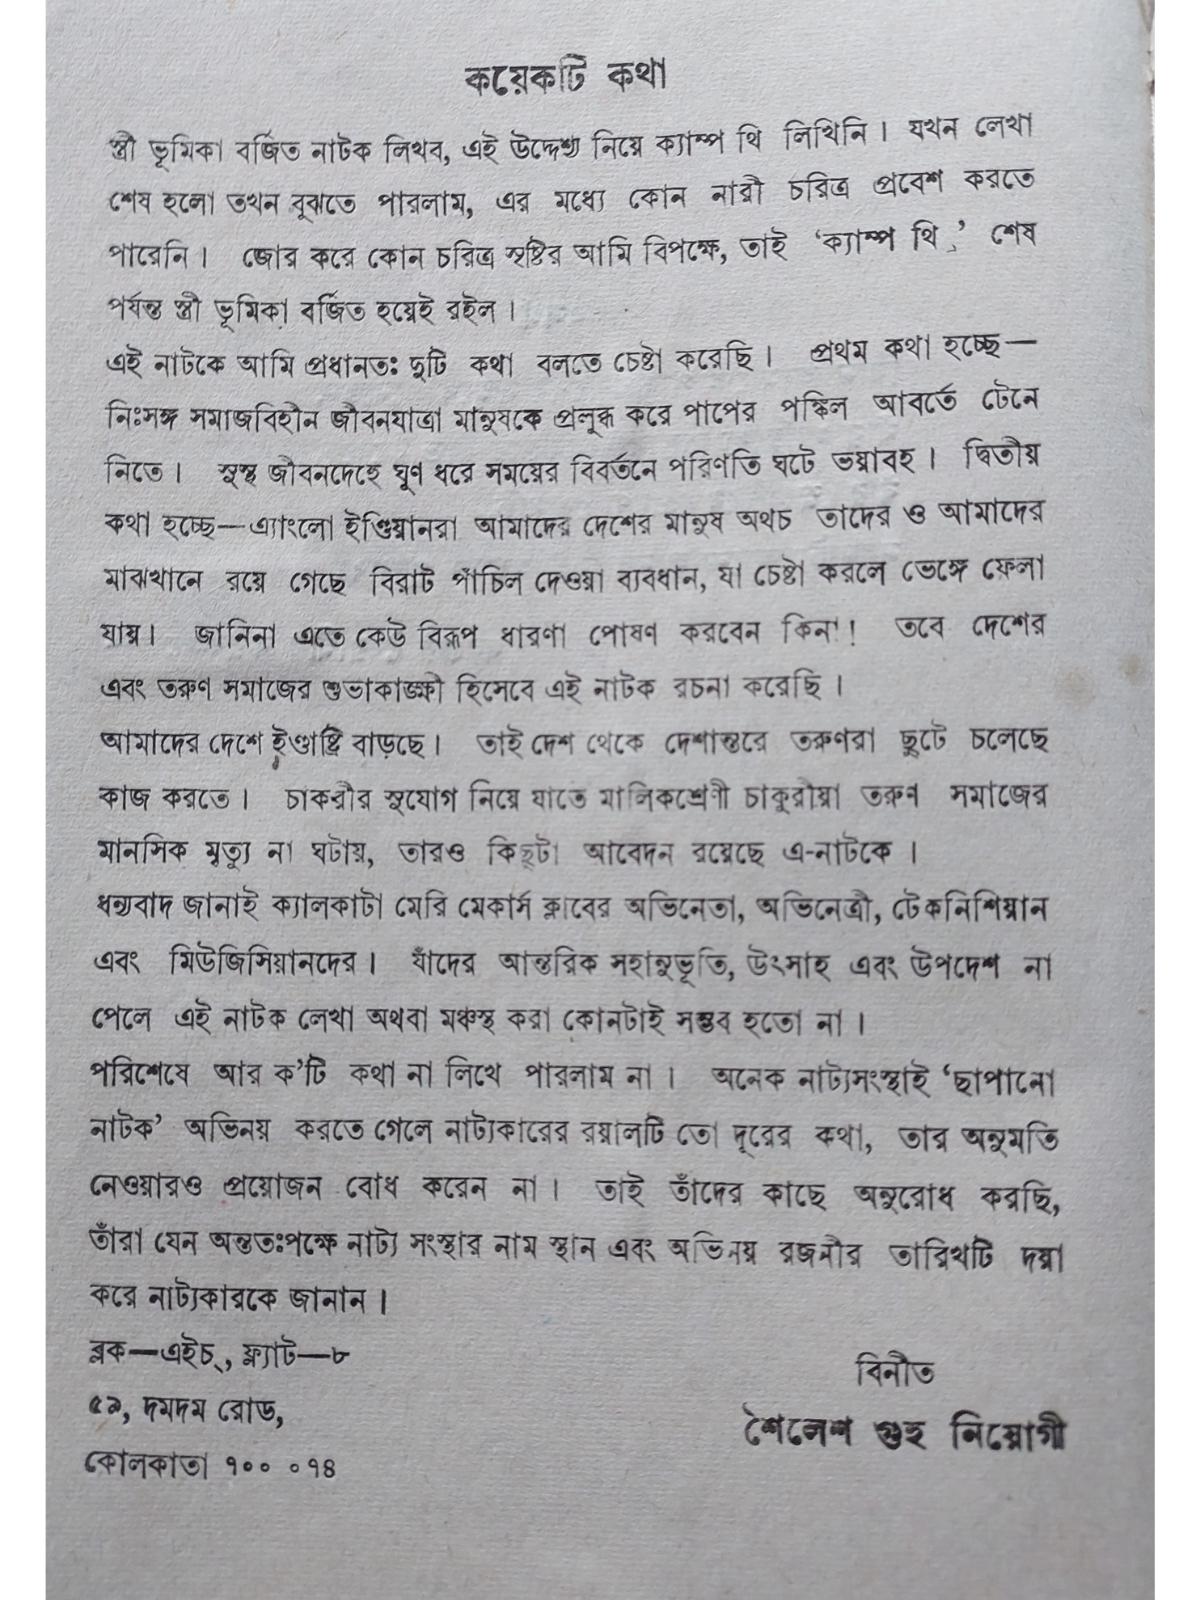 কয়েকটি কথা
স্ত্রী ভূমিকা বর্জিত নাটক লিখব, এই উদ্দেশ্য নিয়ে ক্যাম্প থি লিখিনি। যখন লেখা
শেষ হলো তখন বুঝতে পারলাম, এর মধ্যে কোন নারী চরিত্র প্রবেশ করতে
পারেনি। জোর করে কোন চরিত্র সৃষ্টির আমি বিপক্ষে, তাই ‘ক্যাম্প থি’ শেষ
পর্যন্ত স্ত্রী ভূমিকা বর্জিত হয়েই রইল।
এই নাটকে আমি প্রধানতঃ দুটি কথা বলতে চেষ্টা করেছি। প্রথম কথা হচ্ছে—
নিঃসঙ্গ সমাজবিহীন জীবনযাত্রা মানুষকে প্রলুব্ধ করে পাপের পঙ্কিল আবর্তে টেনে
নিতে। সুস্থ জীবনদেহে ঘুণ ধরে সময়ের বিবর্তনে পরিণতি ঘটে ভয়াবহ। দ্বিতীয়
কথা হচ্ছে—এ্যাংলো ইণ্ডিয়ানরা আমাদের দেশের মানুষ অথচ তাদের ও আমাদের
মাঝখানে রয়ে গেছে বিরাট পাঁচিল দেওয়া ব্যবধান, যা চেষ্টা করলে ভেঙ্গে ফেলা
যায়। জানিনা এতে কেউ বিরূপ ধারণা পোষণ করবেন কিনা! তবে দেশের
এবং তরুণ সমাজের শুভাকাঙ্ক্ষী হিসেবে এই নাটক রচনা করেছি।
আমাদের দেশে ইণ্ডাষ্ট্রি বাড়ছে। তাই দেশ থেকে দেশান্তরে তরুণরা ছুটে চলেছে
কাজ করতে। চাকরীর সুযোগ নিয়ে যাতে মালিকশ্রেণী চাকুরীয়া তরুণ সমাজের
মানসিক মৃত্যু না ঘটায়, তারও কিছুটা আবেদন রয়েছে এ-নাটকে।
ধন্যবাদ জানাই ক্যালকাটা মেরি মেকার্স ক্লাবের অভিনেতা, অভিনেত্রী, টেকনিশিয়ান
এবং মিউজিসিয়ানদের। যাঁদের আন্তরিক সহানুভূতি, উৎসাহ এবং উপদেশ না
পেলে এই নাটক লেখা অথবা মঞ্চস্থ করা কোনটাই সম্ভব হতো না।
পরিশেষে আর ক’টি কথা না লিখে পারলাম না। অনেক নাট্যসংস্থাই ‘ছাপানো
নাটক’ অভিনয় করতে গেলে নাট্যকারের রয়ালটি তো দূরের কথা, তার অনুমতি
নেওয়ারও প্রয়োজন বোধ করেন না। তাই তাঁদের কাছে অনুরোধ করছি,
তাঁরা যেন অন্ততঃপক্ষে নাট্য সংস্থার নাম স্থান এবং অভিনয় রজনীর তারিখটি দয়া
করে নাট্যকারকে জানান।
ব্লক—এইচ্, ফ্ল্যাট—৮
৫৯, দমদম রোড,
কোলকাতা ৭০০ ০৭৪
বিনীত
শৈলেশ গুহ নিয়োগী